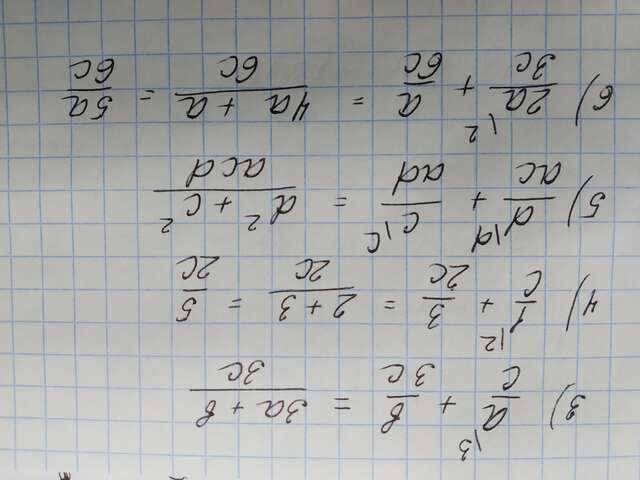 3) a\3/c + b/3c = (3a + b)/3c
4) 1\2/c + 3/2c = (2 + 3)/2c = 5/2c
5) d\d/ac + c\c/ad = (d² + c²)/acd
6) 2a\2/3c + a/6c = (4a + a)/6c = 5a/6c